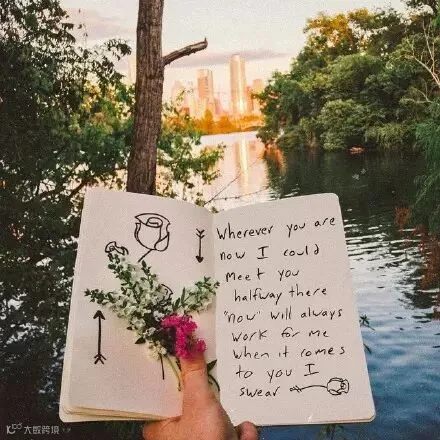 Wherever you are
now I could
Meet you
halfway there
"now" will always
work for me
when it comes
to you I
swear
大数跨境